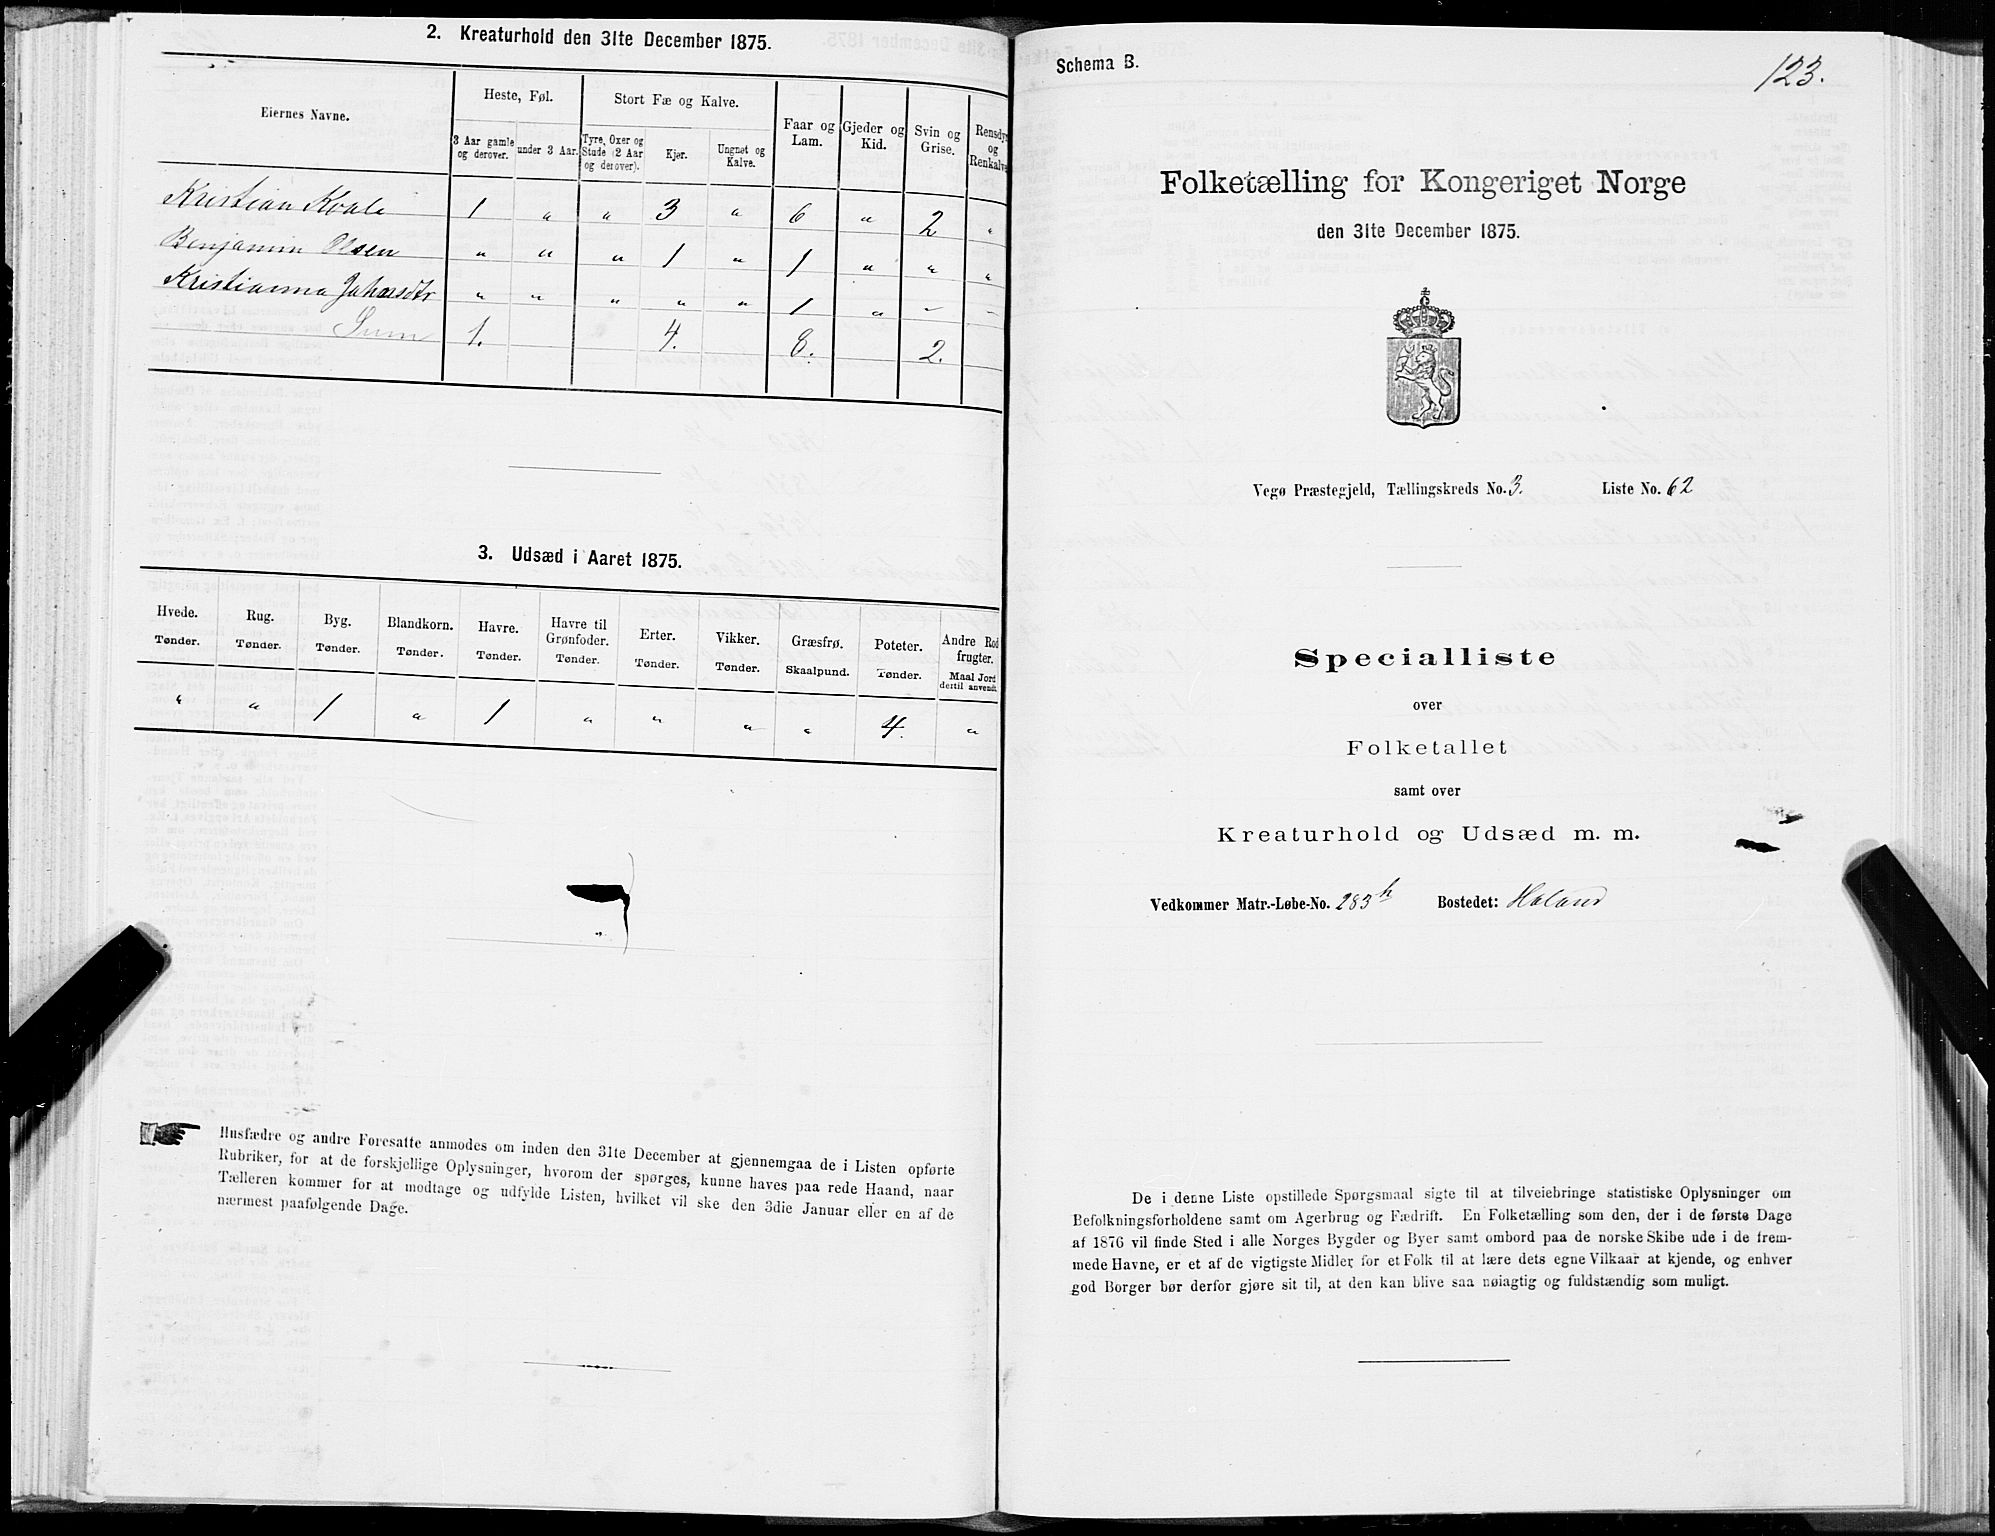 2. Kreaturhold den 31te December 1875.
Eiernes Navne.
Heste, Føl.
Stort Fæ og Kalve.
Faar og Lam.
Gjeder og Kid.
Svin og Grise.
Rensdyr og Renkalve
3 Aar gamle og derover.
under 3 Aar.
Tyre, Oxer og Stude (2 Aar og derover).
Kjør.
Ungnøt og Kalve.
Kristian Kvale 1 " " 3 " 6 " 2 "
Benjamin Olsen " " " 1 " 1 " " "
Kristianna Johansdtr " " " " " 1 " " "
Sum 1. 4. 8. 2.
3. Udsæd i Aaret 1875.
Hvede. Rug. Byg. Blandkorn. Havre. Havre til Grønfoder. Erter. Vikker. Græsfrø. Poteter. Andre Rodfrugter.
Tønder. Tønder. Tønder. Tønder. Tønder. Tønder. Tønder. Tønder. Skaalpund. Tønder. Maal Jord dertil anvendt.
" " 1 " 1 " " " " 4. "
Husfædre og andre Foresatte anmodes om inden den 31te December at gjennemgaa de i Listen opførte
Rubriker, for at de forskjellige Oplysninger, hvorom der spørges, kunne haves paa rede Haand, naar
Tælleren kommer for at modtage og udfylde Listen, hvilket vil ske den 3die Januar eller en af de
nærmest paafølgende Dage.
Schema B.
123.
Folketælling for Kongeriget Norge
den 31te December 1875.
Vegø Præstegjeld, Tællingskreds No. 3. Liste No. 62
Specialliste
over
Folketallet
samt over
Kreaturhold og Udsæd m. m.
Vedkommer Matr.-Løbe-No. 283h Bostedet: Holand
De i denne Liste opstillede Spørgsmaal sigte til at tilveiebringe statistiske Oplysninger om
Befolkningsforholdene samt om Agerbrug og Fædrift. En Folketælling som den, der i de første Dage
af 1876 vil finde Sted i alle Norges Bygder og Byer samt ombord paa de norske Skibe ude i de frem-
mede Havne, er et af de vigtigste Midler for et Folk til at lære dets egne Vilkaar at kjende, og enhver
god Borger bør derfor gjøre sit til, at den kan blive saa nøiagtig og fuldstændig som muligt.